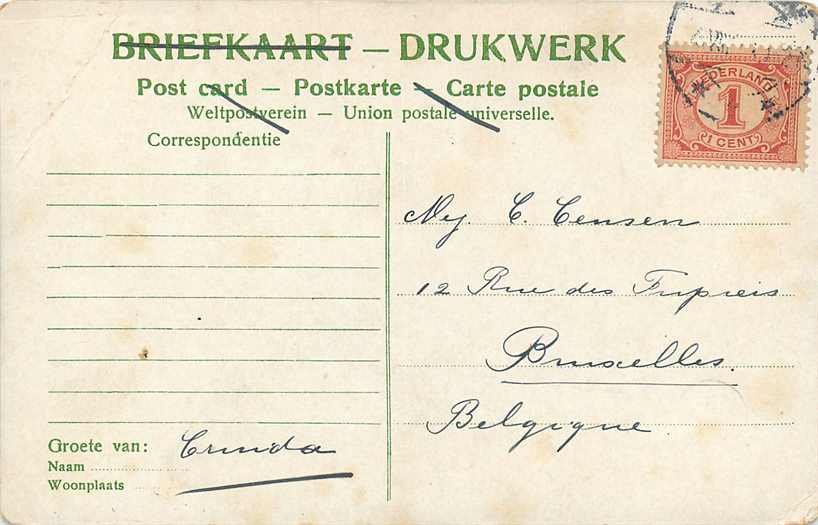 BRIEFKAART — DRUKWERK
Post card — Postkarte — Carte postale
Weltpostverein — Union postale universelle.
Correspondentie
NEDERLAND
1
1 CENT
Mej. C. Censen
12 Rue des
Bruxelles.
Belgique.
Groete van:
Naam
Woonplaats